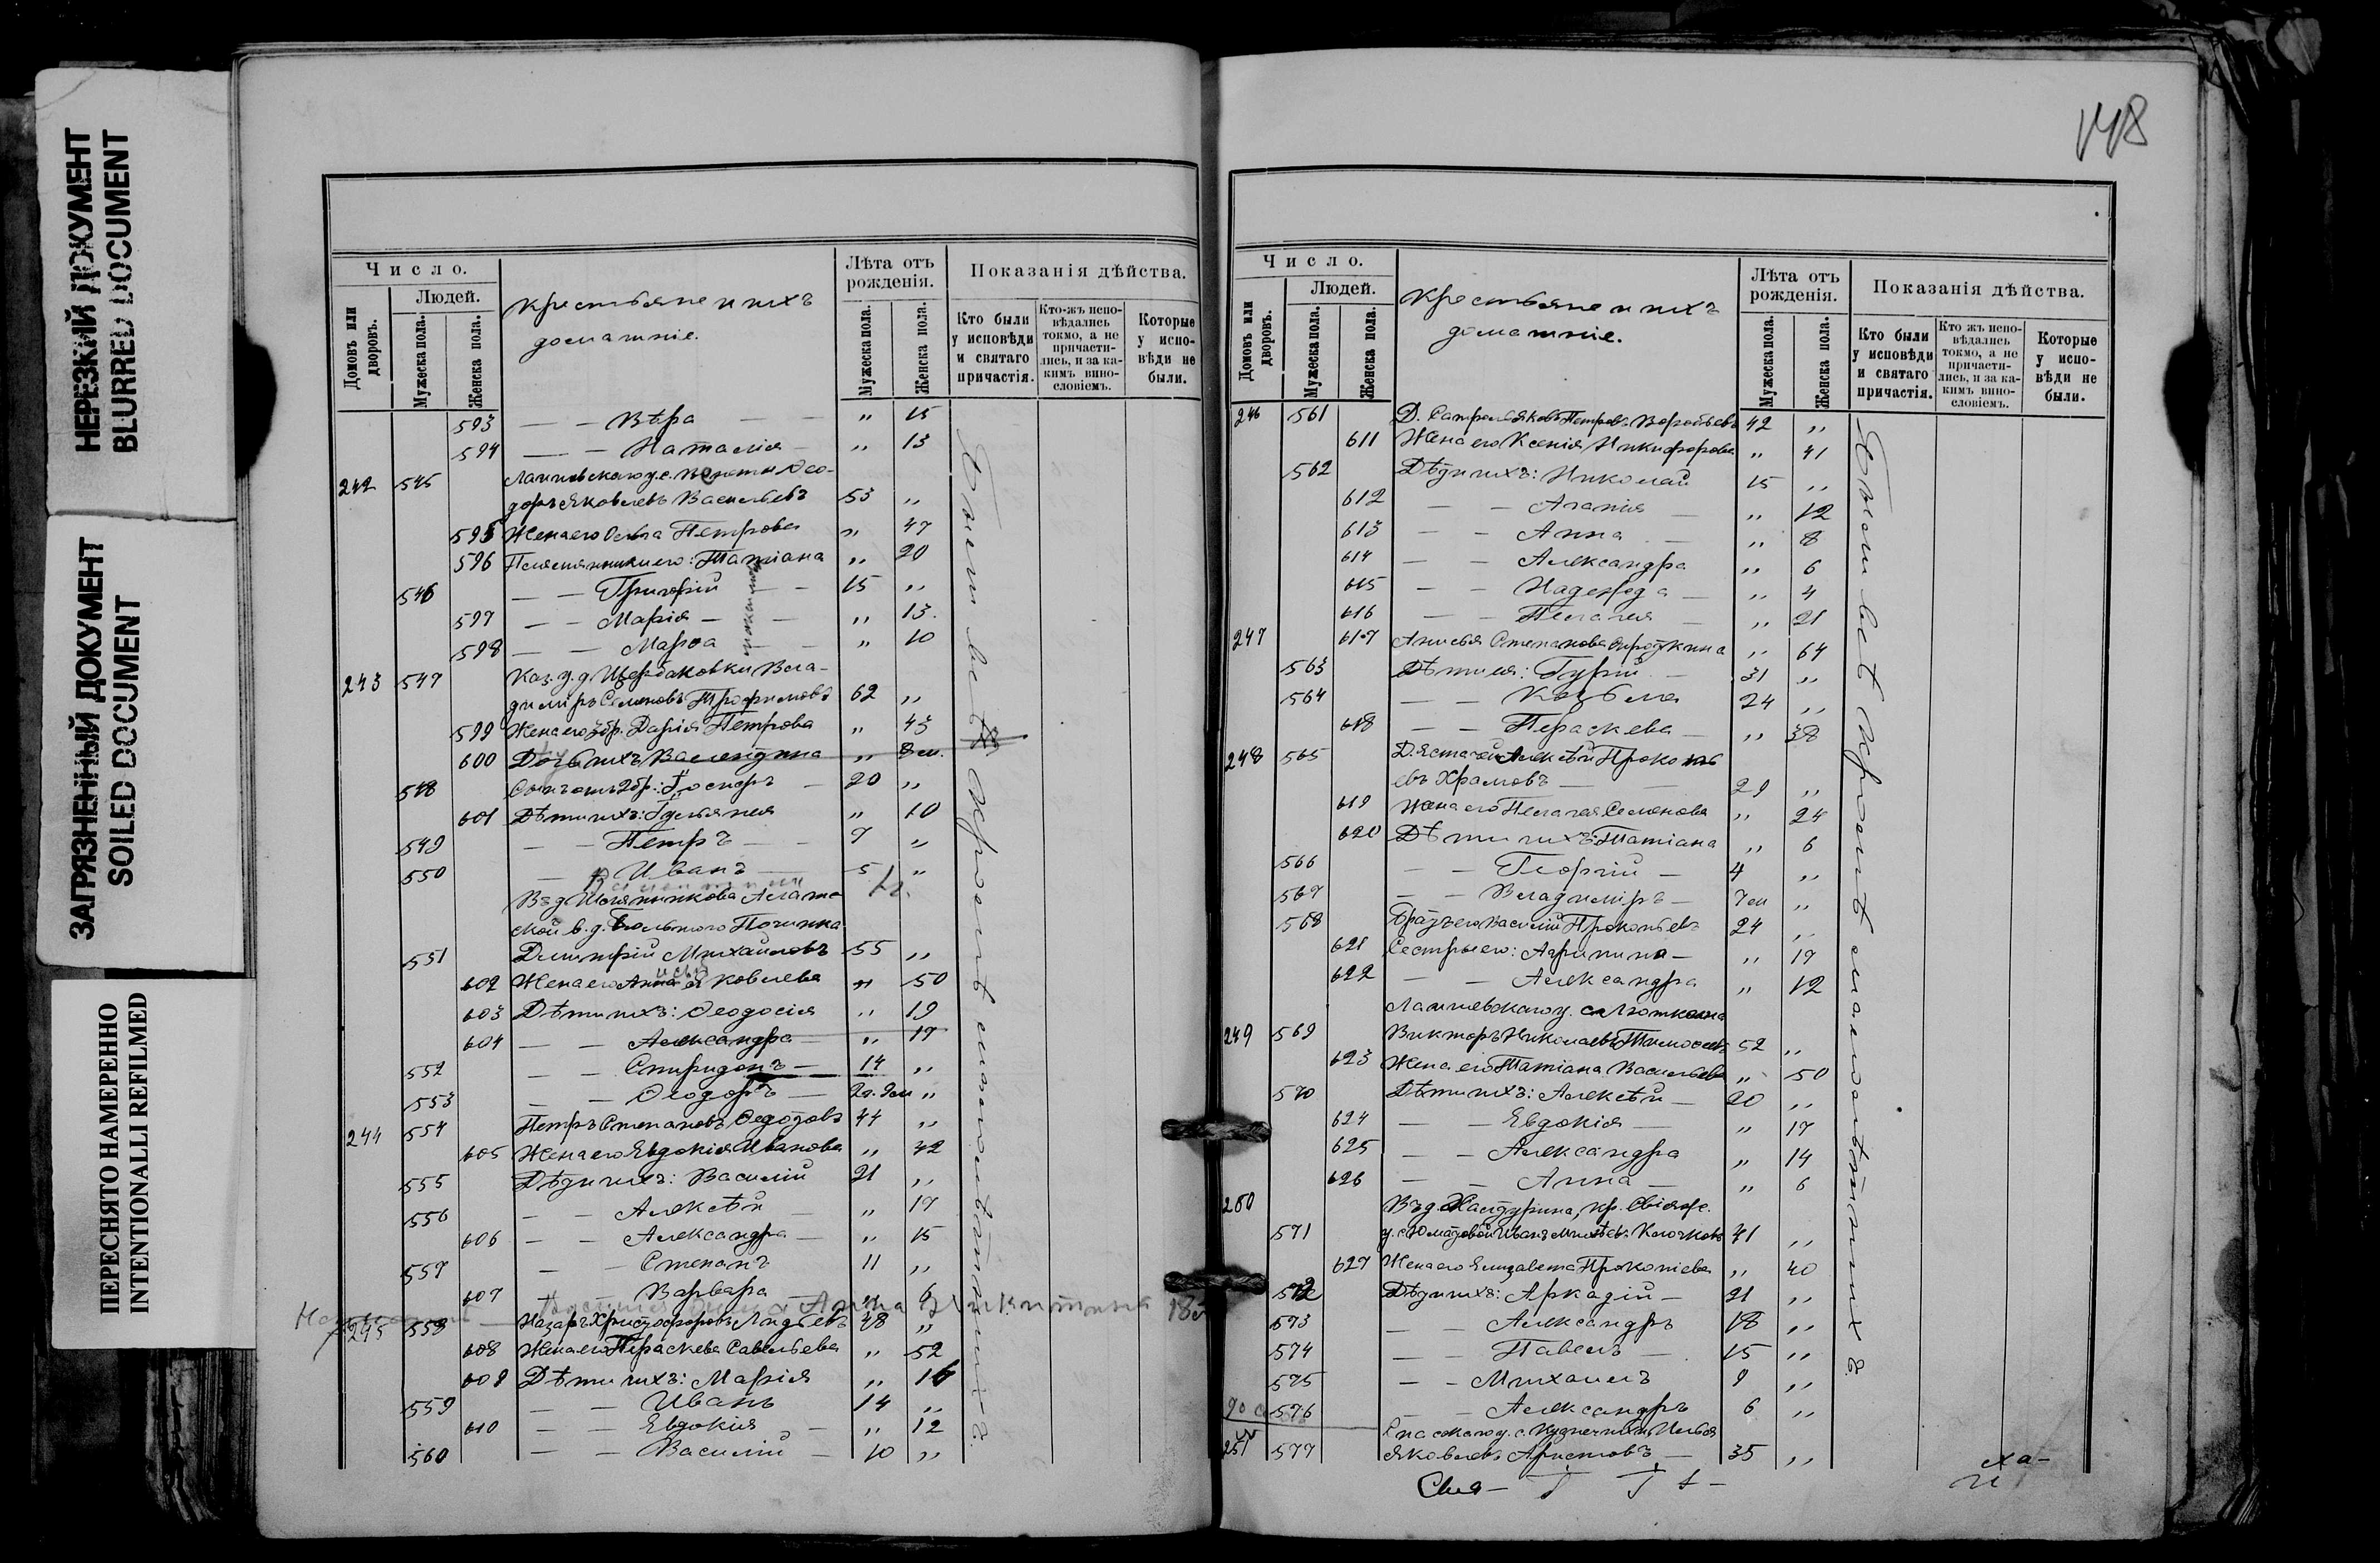 НЕРЕЗКИЙ ДОКУМЕНТ
BLURRED DOCUMENT
ЗАГРЯЗНЕННЫЙ ДОКУМЕНТ
SOILED DOCUMENT
ПЕРЕСНЯТО НАМЕРЕННО
INTENTIONALLI REFILMED
Число.
Людей.
Домовъ или дворовъ.
Мужеска пола.
Женска пола.
Крестьяне и ихъ
домашніе.
Лѣта отъ рожденія.
Мужеска пола.
Женска пола.
Показанія дѣйства.
Кто были у исповѣди и святаго причастія.
Кто-жъ испо-вѣдались токмо, а не причасти-лись, и за ка-кимъ вино-словіемъ.
Которые у испо-вѣди не были.
593 — — Вѣра — — „ 15
594 — — Наталія — „ 13
242 545 Лаишевскаго у. с. Ѳео-
доръ Яковлевъ Васильевъ 53 „
595 Жена его Ольга Петрова „ 47
596 Племянники его: Татіана „ 20
546 — — Григорій — — 15 „
597 — — Марія — — „ 13
598 — — Марѳа — „ 10
243 547 Каз. у. д. Щербаковки Вла-
диміръ Семеновъ Трофимовъ 62 „
599 Жена его 3 бр. Дарія Петрова „ 43
600 Дочь ихъ Валентина „ 8 м.
548 Сынъ отъ 2 бр.: — 20 „
601 Дѣти ихъ: „ 10
549 — — Петръ — — 7 „
550 — — Иванъ — 5 „
Въ д.
ской в. д. Починка
551 Димитрій Михайловъ 55 „
602 Жена его Анна Яковлева „ 50
603 Дѣти ихъ: Ѳеодосія „ 19
604 — — Александра — „ 17
552 — — Спиридонъ — 14 „
553 — — Ѳеодоръ — 2 г. „
244 554 Петръ Степановъ Ѳедотовъ 44 „
605 Жена его Евдокія Иванова „ 42
555 Дѣти ихъ: Василій 21 „
556 — — Алексѣй — „ 17
606 — — Александра — „ 15
557 — — Степанъ 11 „
607 — — Варвара — „ 6
Анна Никитина 18
245 558 Назаръ Христофоровъ 48 „
608 Жена его Параскева Савельева „ 52
609 Дѣти ихъ: Марія „ 16
559 — — Иванъ 14 „
610 — — Евдокія — „ 12
560 — — Василій — 10 „
Были всѣ кромѣ малолѣтнихъ.
148
Число.
Людей.
Домовъ или дворовъ.
Мужеска пола.
Женска пола.
Крестьяне и ихъ
домашніе.
Лѣта отъ рожденія.
Мужеска пола.
Женска пола.
Показанія дѣйства.
Кто были у исповѣди и святаго причастія.
Кто жъ испо-вѣдались токмо, а не причасти-лись, и за ка-кимъ вино-словіемъ.
Которые у испо-вѣди не были.
246 561 Д. Яковъ Петровъ Воробьевъ 42 „
611 Жена его Ксенія Никифорова „ 41
562 Дѣти ихъ: Николай 15 „
612 — — Агапія — „ 12
613 — — Анна — „ 8
614 — — Александра „ 6
615 — — Надежда — „ 4
616 — — Пелагея — „ 21
247 617 Анисья Степанова „ 64
563 Дѣти ея: Гурій — 31 „
564 — — Козьма 24 „
618 — — Параскева — „ 38
248 565 Д. Алексѣй Прокопь-
евъ Храмовъ — — 29 „
619 Жена его Пелагея Семенова „ 24
620 Дѣти ихъ: Татіана „ 6
566 — — Георгій — 4 „
567 — — Владиміръ — 7 м „
568 Братъ его Василій Прокопьевъ 24 „
621 Сестры его: Агрипина — „ 19
622 — — Александра „ 12
Лаишевскаго у. с.
249 569 Викторъ Николаевъ Тимоѳеевъ 52 „
623 Жена его Татіана Васильева „ 50
570 Дѣти ихъ: Алексѣй — 20 „
624 — — Евдокія — „ 17
625 — — Александра „ 14
626 — — Анна — „ 6
250 Въ д. кр. Свіяж.
571 у. с. Иванъ Клочковъ 41 „
627 Жена его Елизавета Прокопіева „ 40
572 Дѣти ихъ: Аркадій — 21 „
573 — — Александръ 18 „
574 — — Павелъ — 15 „
575 — — Михаилъ 9 „
576 — — Александръ 6 „
Спасскаго у. с. Илья
251 577 Яковлевъ Аристовъ — 35 „
Были всѣ кромѣ малолѣтнихъ.